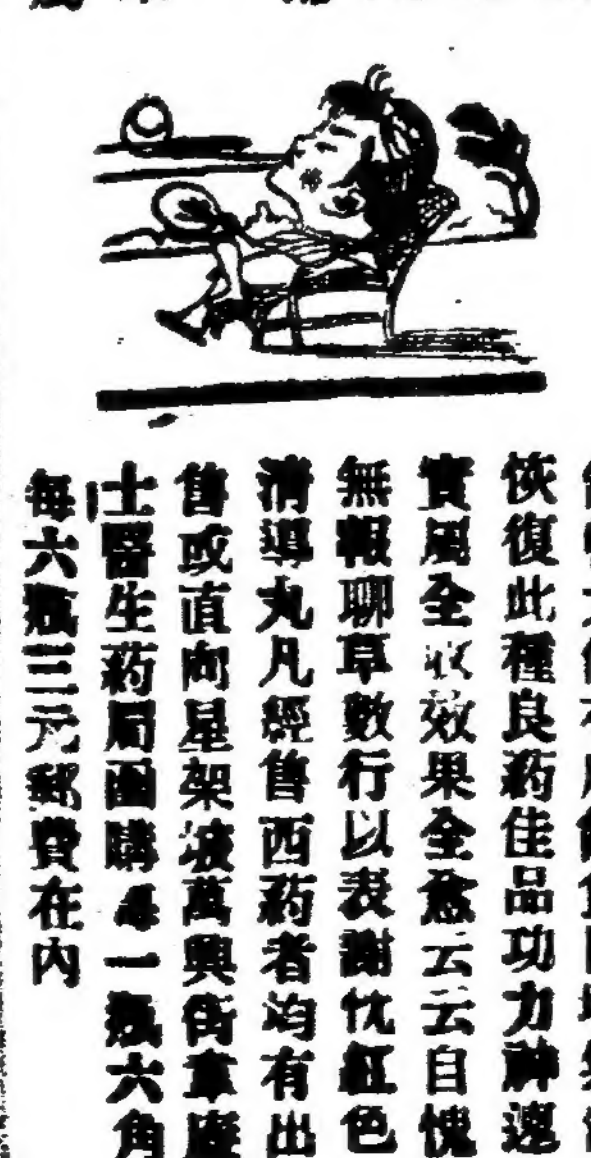 恢復此種良葯佳品功力神速
實屬全效果全愈云云自愧
無報聊草數行以表謝忱紅色
清導丸凡經售西葯者均有出
售或直向星架坡萬興街韋廉
士醫生葯局函購每一瓶六角
每六瓶三元郵費在內